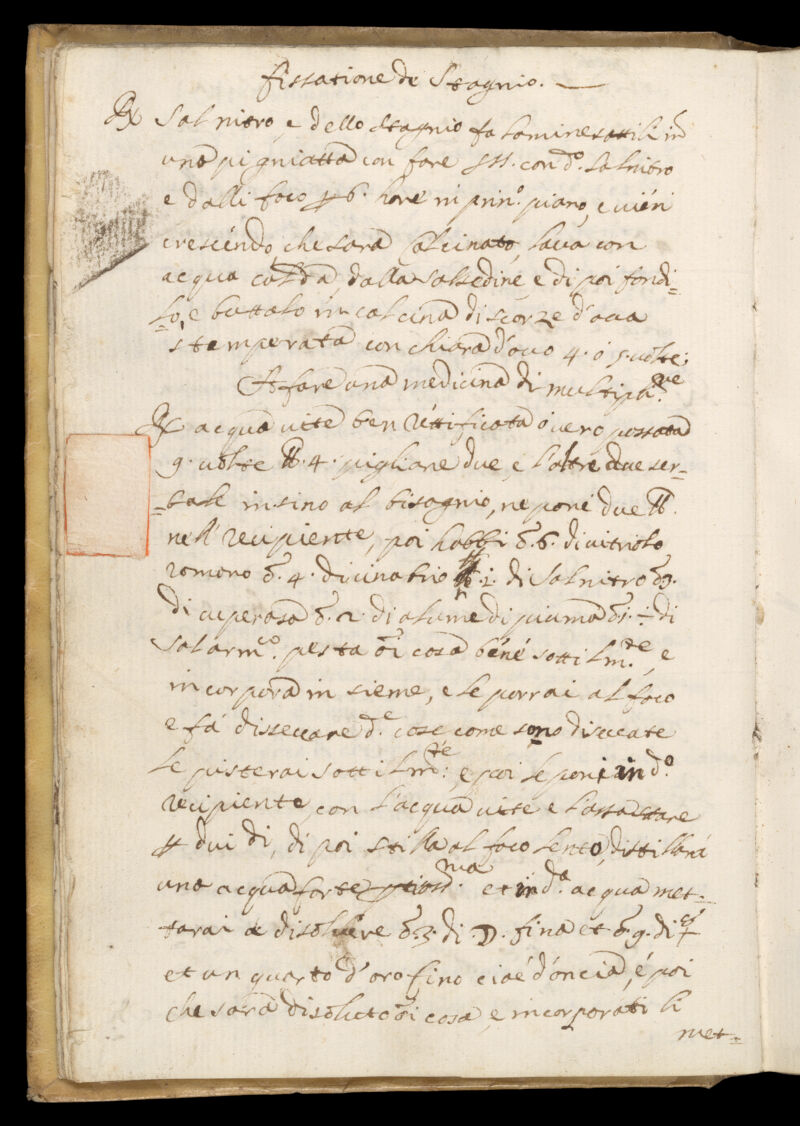 fissatione de Stagnio.
℞ Salnitro, e dello stagnio fa lamine sottili in
una pigniatta con fare SSS. con d.º salnitro
e dalli foco p 6. hore in prin.º piano, e vieni
crescendo, che sara calcinato, lava con
acqua calda, dalla salsedine, e di poi fondi-
-lo, e buttalo in calcina di scorze d'ova
stemperata con chiara d'ovo 4. ó 5. volte:
A fare una medicina di multipli.ne
℞ acqua vite ben rettificata óvero passata
9. volte ℔. 4. pigliane due, e l'altre due ser-
-bale insino al bisognio, ne poné due ℔.
nell recipiente, poi habbi õ. 6. di vitriolo
romano õ. 4. di cinabrio ℔. 1. di Salnitro õ 3.
di cuperosa õ. 2. di alume di piuma õ 1. ÷ di
Sal arm.co. pesta õi cosa béné sottilm.te, e
incorpora in sieme, e le porrai al foco
e fá disseccare d.e cose come sono diseccate
le pisterai sottilm.te: e poi le poni in d.º
recipiente, con l'acqua vite e
p dui di, di poi stilla al foco lento, distillará
una acqua forte et in d.a acqua met-
tarai a disolvere õ. 3. di ☽. fina et õ. 9. di ☿
et un quarto d'oro fino cioé d'óncia, é poi
che sara disoluto õi cosa, e incorporati li
met-